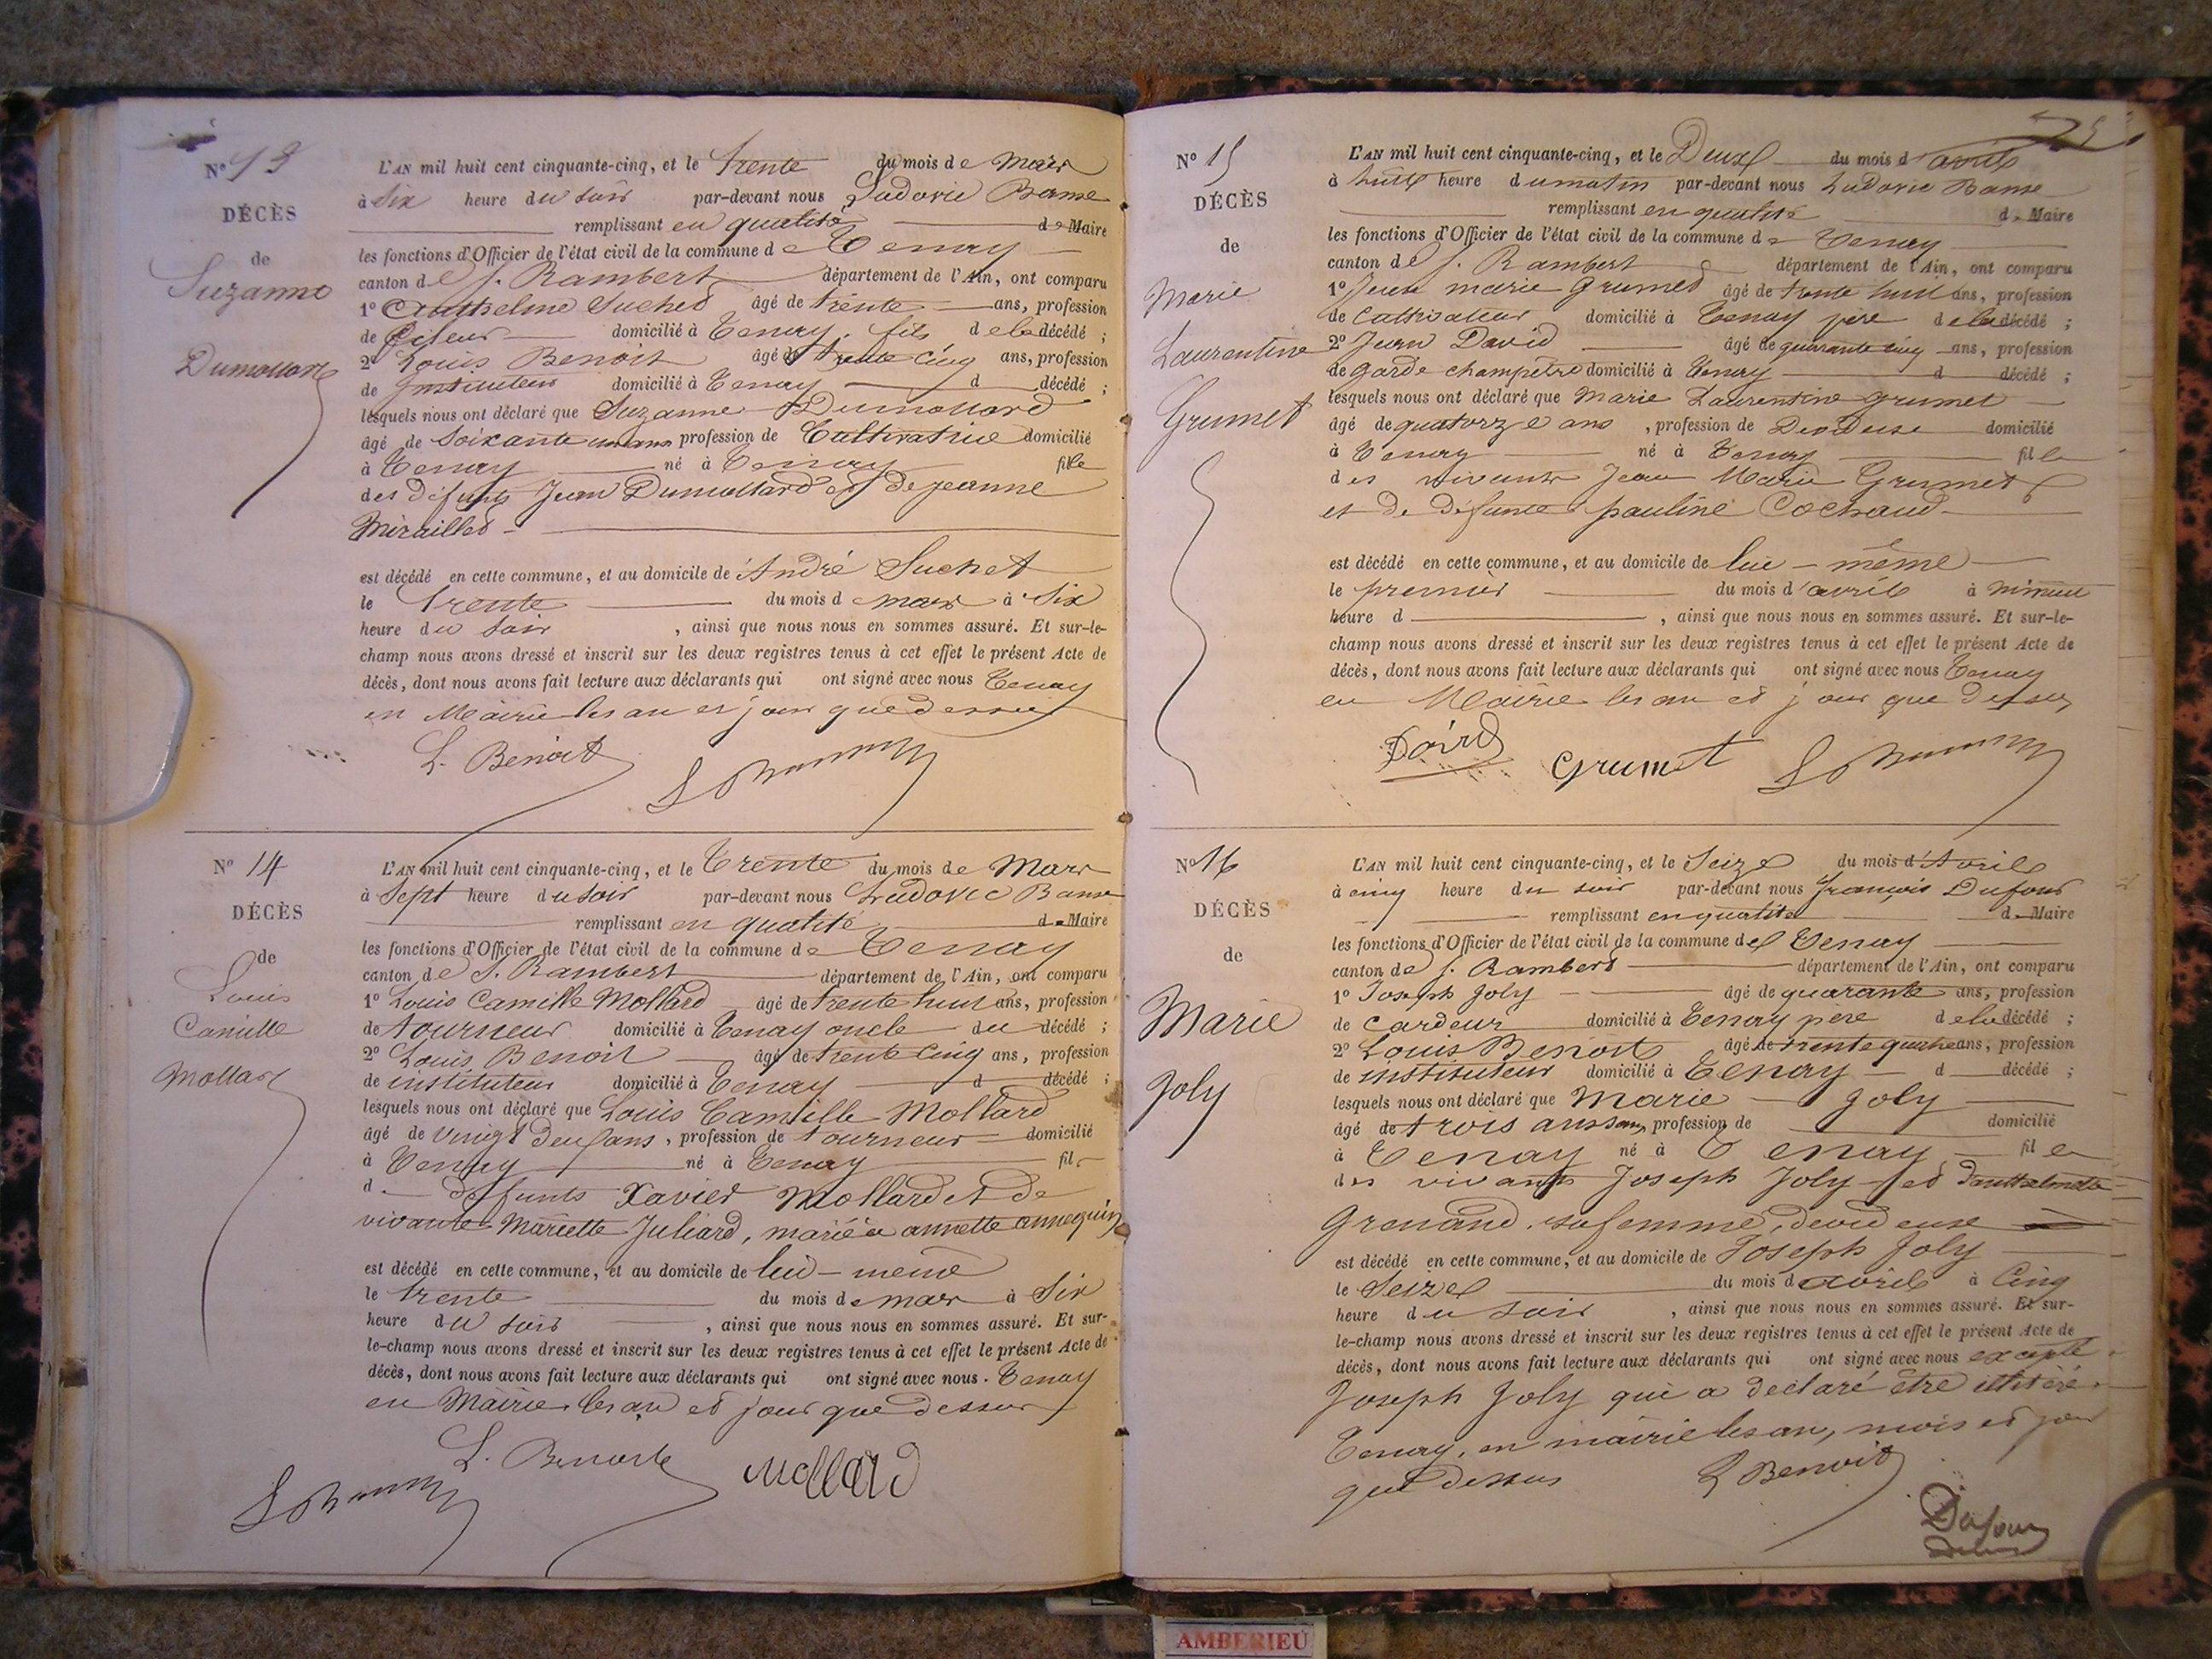 N° 13
DÉCÈS
de
Suzanne
Dumollard
L'AN mil huit cent cinquante-cinq, et le trente du mois de Mars
à Six heure du soir par-devant nous Ludovic Bonne
remplissant en qualité de Maire
les fonctions d'Officier de l'état civil de la commune de Tenay
canton de S. Rambert département de l'Ain, ont comparu
1° Anthelme Suchet âgé de trente ans, profession
de fileur domicilié à Tenay, fils de la décédé ;
2° Louis Benoit âgé de trente cinq ans, profession
de Instituteur domicilié à Tenay d décédé ;
lesquels nous ont déclaré que Suzanne Dumollard
âgé de soixante un ans profession de Cultivatrice domicilié
à Tenay né à Tenay fille
des défunts Jean Dumollard et de jeanne
Mirailles
est décédé en cette commune, et au domicile de André Suchet
le trente du mois de mars à Six
heure du soir , ainsi que nous nous en sommes assuré. Et sur-le-
champ nous avons dressé et inscrit sur les deux registres tenus à cet effet le présent Acte de
décès, dont nous avons fait lecture aux déclarants qui ont signé avec nous Tenay
en Mairie les an et jour que dessus
L. Benoit
N° 14
DÉCÈS
de
Louis
Camille
Mollard
L'AN mil huit cent cinquante-cinq, et le Trente du mois de Mars
à Sept heure du soir par-devant nous Ludovic Bonne
remplissant en qualité de Maire
les fonctions d'Officier de l'état civil de la commune de Tenay
canton de S. Rambert département de l'Ain, ont comparu
1° Louis Camille Mollard âgé de trente huit ans, profession
de tourneur domicilié à Tenay oncle du décédé ;
2° Louis Benoit âgé de trente cinq ans, profession
de instituteur domicilié à Tenay d décédé ;
lesquels nous ont déclaré que Louis Camille Mollard
âgé de vingt deux ans, profession de tourneur domicilié
à Tenay né à Tenay fils
d défunts Xavier Mollard et de
vivante Mariette Juliard, marié à annette annequin
est décédé en cette commune, et au domicile de lui-même
le trente du mois de mars à Six
heure du soir , ainsi que nous nous en sommes assuré. Et sur-
le-champ nous avons dressé et inscrit sur les deux registres tenus à cet effet le présent Acte de
décès, dont nous avons fait lecture aux déclarants qui ont signé avec nous. Tenay
en Mairie les an et jour que dessus
L. Benoit Mollard
N° 15
DÉCÈS
de
Marie
Laurentine
Grumet
L'AN mil huit cent cinquante-cinq, et le Deux du mois d'avril
à huit heure du matin par-devant nous Ludovic Bonne
remplissant en qualité de Maire
les fonctions d'Officier de l'état civil de la commune de Tenay
canton de S. Rambert département de l'Ain, ont comparu
1° Jean marie Grumet âgé de trente huit ans, profession
de Cultivateur domicilié à Tenay père de la décédé ;
2° Jean David âgé de quarante cinq ans, profession
de garde champêtre domicilié à Tenay d décédé ;
lesquels nous ont déclaré que Marie Laurentine Grumet
âgé de quatorze ans , profession de Devideuse domicilié
à Tenay né à Tenay fille
des vivants Jean Marie Grumet
et de défunte pauline Cochaud
est décédé en cette commune, et au domicile de lui-même
le premier du mois d'avril à minuit
heure d , ainsi que nous nous en sommes assuré. Et sur-le-
champ nous avons dressé et inscrit sur les deux registres tenus à cet effet le présent Acte de
décès, dont nous avons fait lecture aux déclarants qui ont signé avec nous Tenay
en Mairie les an et jour que dessus
David Grumet
N° 16
DÉCÈS
de
Marie
Joly
L'AN mil huit cent cinquante-cinq, et le Seize du mois d'Avril
à cinq heure du soir par-devant nous françois Dufour
remplissant en qualité de Maire
les fonctions d'Officier de l'état civil de la commune de Tenay
canton de S. Rambert département de l'Ain, ont comparu
1° Joseph Joly âgé de quarante ans, profession
de Cardeur domicilié à Tenay père de la décédé ;
2° Louis Benoit âgé de trente quatre ans, profession
de instituteur domicilié à Tenay d décédé ;
lesquels nous ont déclaré que Marie Joly
âgé de trois ans profession de domicilié
à Tenay né à Tenay fille
des vivants Joseph Joly et d'anthelmette
Grenand, sa femme, devideuse
est décédé en cette commune, et au domicile de Joseph Joly
le Seize du mois d'avril à Cinq
heure du soir , ainsi que nous nous en sommes assuré. Et sur-
le-champ nous avons dressé et inscrit sur les deux registres tenus à cet effet le présent Acte de
décès, dont nous avons fait lecture aux déclarants qui ont signé avec nous excepté
Joseph Joly qui a déclaré être illitéré
Tenay, en mairie les an, mois et jour
que dessus L Benoit
Dufour
AMBERIEU